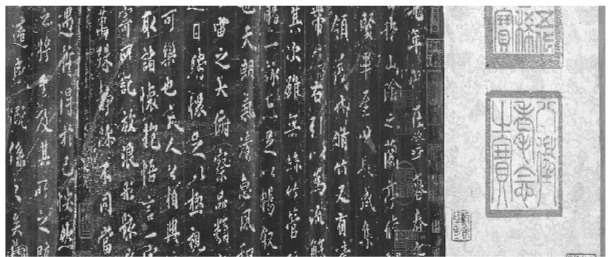 九年歲在癸丑暮春之
稽山陰之蘭亭脩
賢畢至少長咸集
領茂林脩竹又有清
帶左右引以為流觴
其次雖無絲竹管
觴一詠亦足以暢敘
也天朗氣清惠風和
宙之大俯察品類
遊目騁懷足以極視
可樂也夫人之相與
取諸懷抱悟言一
寄所託放浪形骸
萬殊靜躁不同當
遇暫得於己快然
之將至及其所之既
遷感慨係之矣
八徵耄念之寶